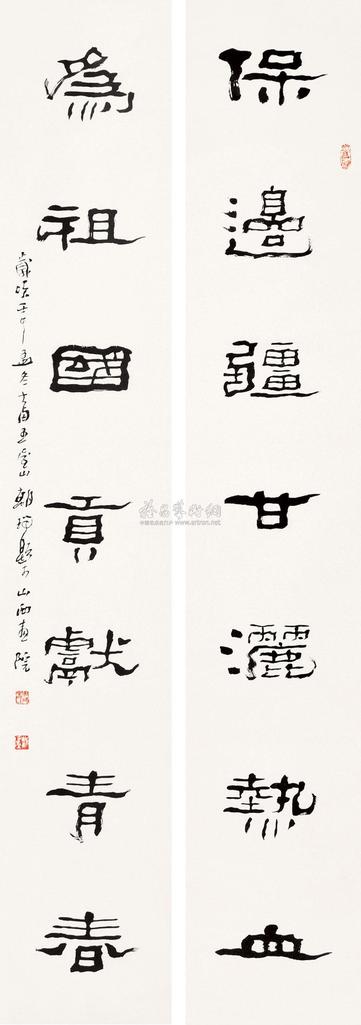 保邊疆甘灑熱血
為祖國貢獻青春
雅昌藝術網
www.artron.net